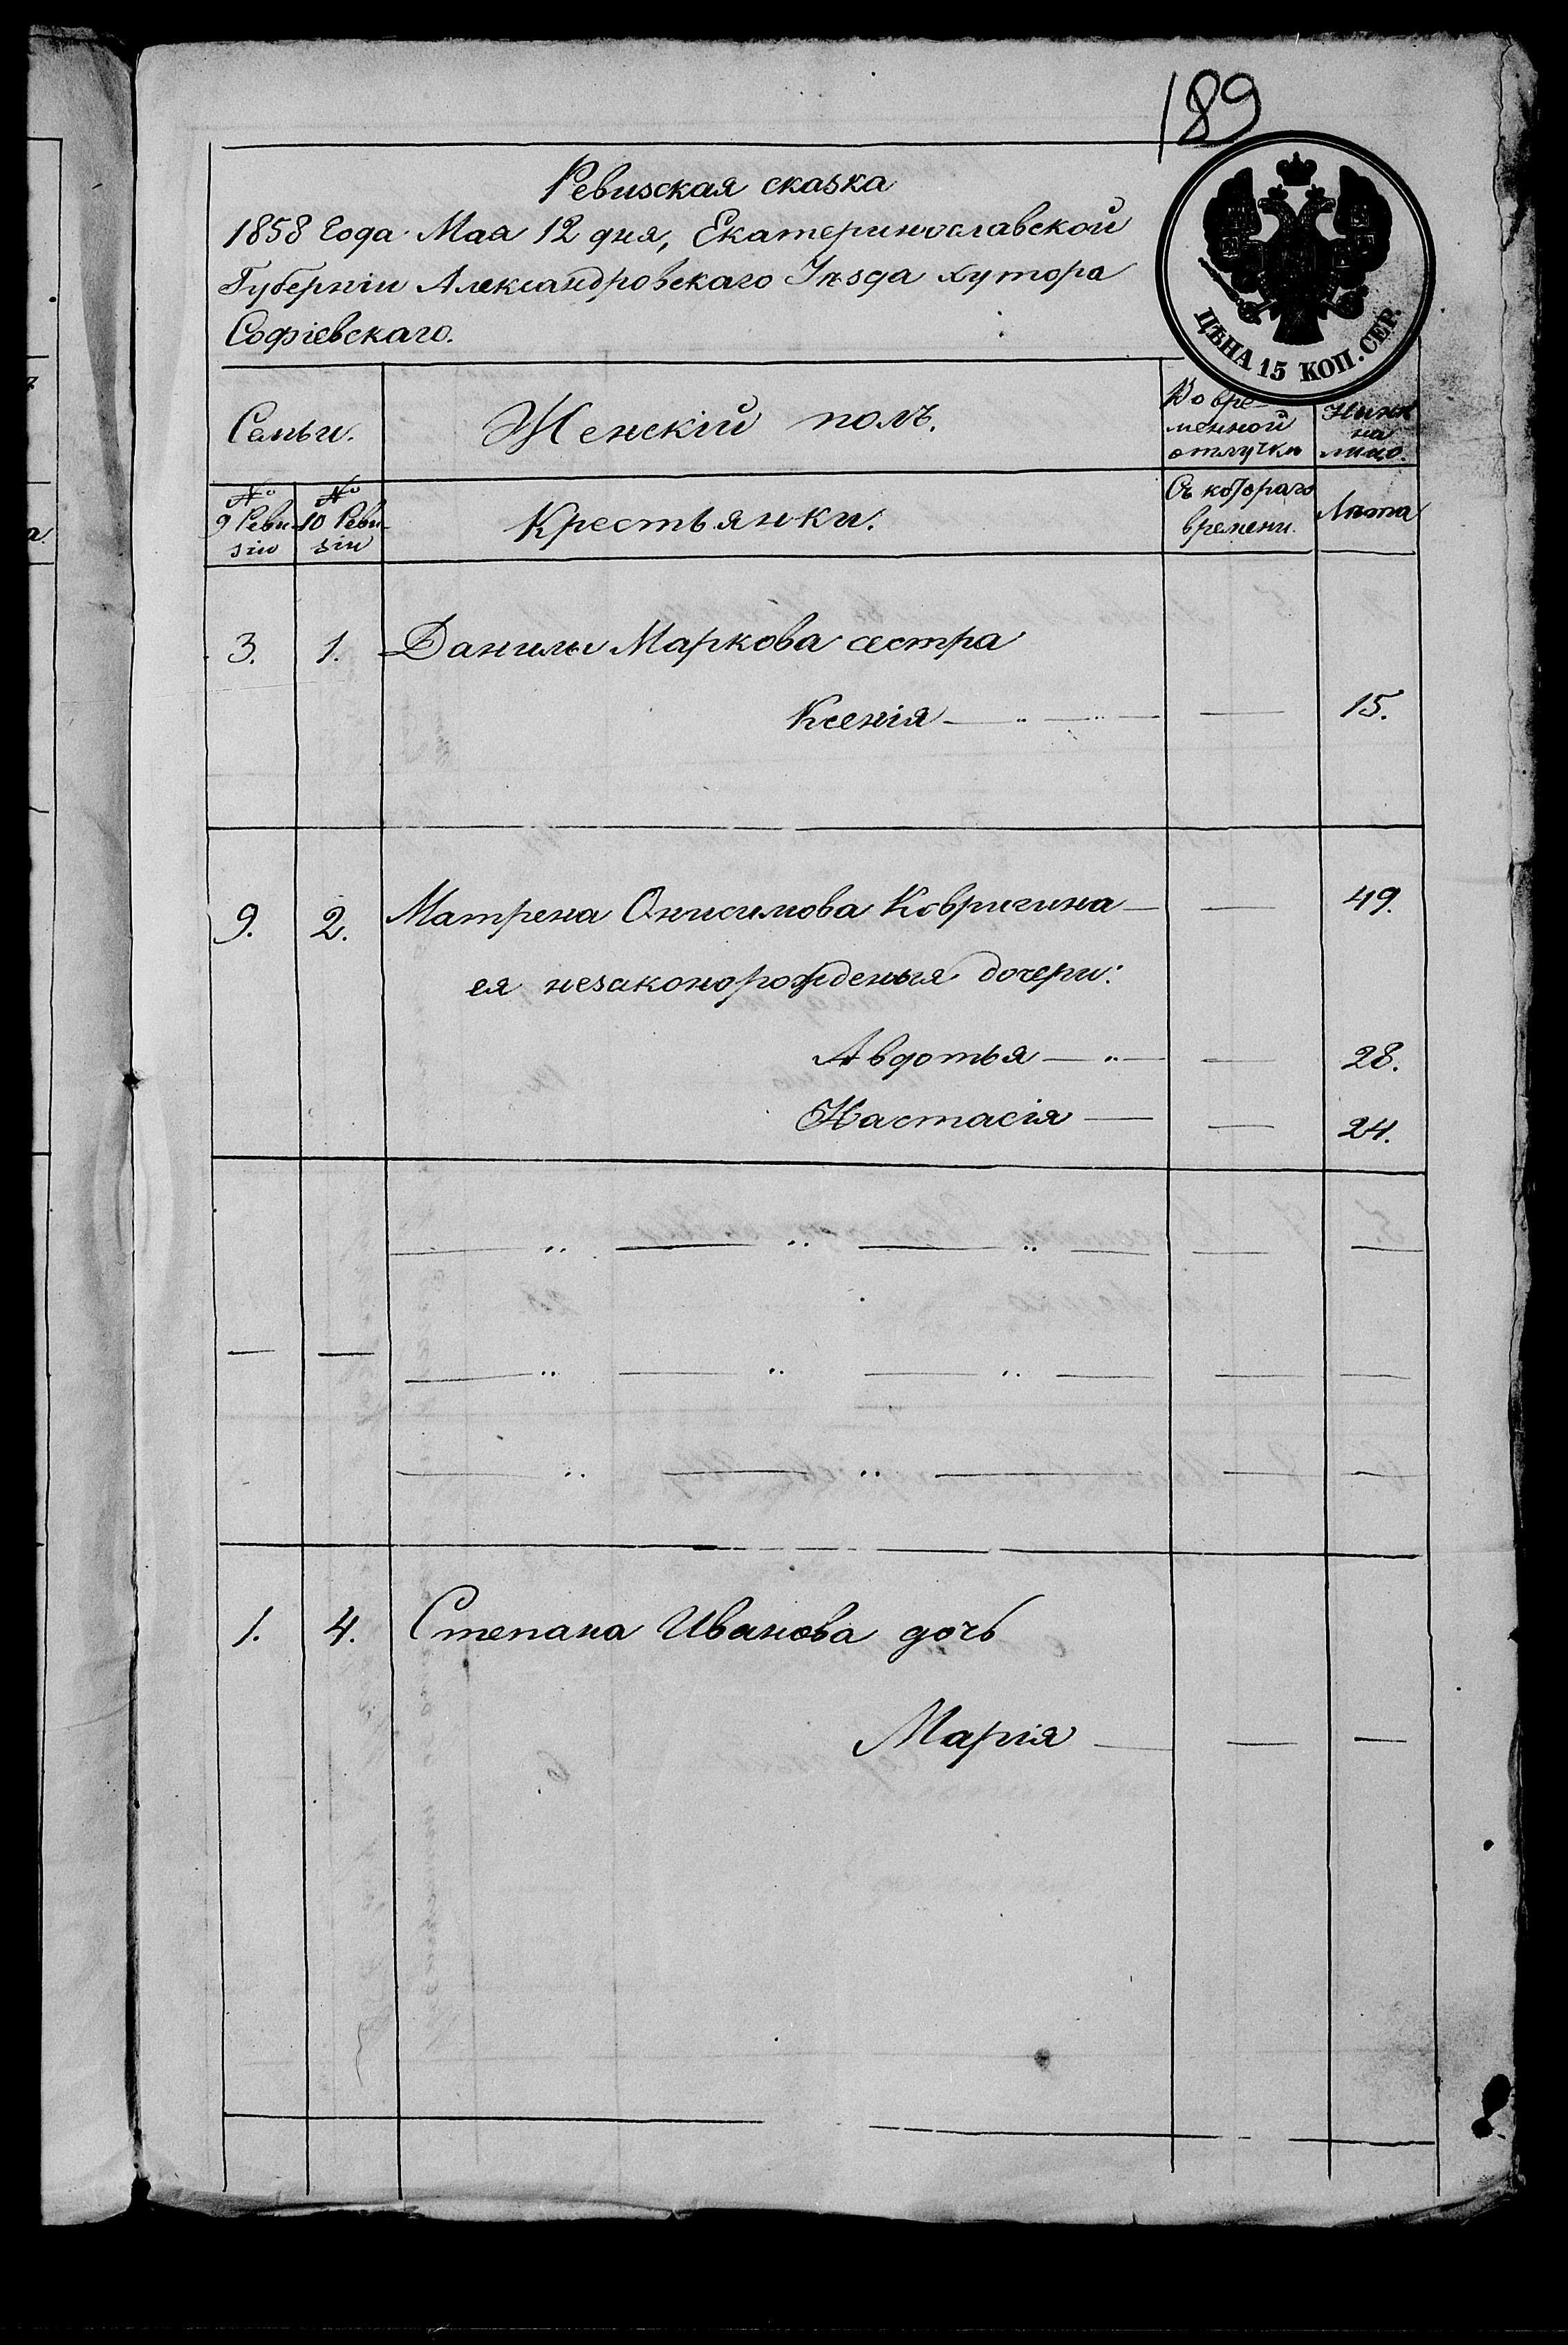 189
Ревизская сказка
1858 года Мая 12 дня, Екатеринославской
Губерніи Александровскаго Уѣзда хутора
Софіевскаго.
ЦѢНА 15 КОП. СЕР.
Семьи. Женскій полъ. Во вре-менной отлучки Нынѣ на лицо.
№ 9 Реви-зіи № 10 Реви-зіи Крестьянки. Съ котораго времени. Лѣта
3. 1. Данилы Маркова сестра
Ксенія — " — " — — 15.
9. 2. Матрена Онисимова Ковригина — — 49.
ея незаконорожденыя дочери:
Авдотья — " — — 28.
Настасія — — 24.
1. 4. Степана Иванова дочь
Марія — — —